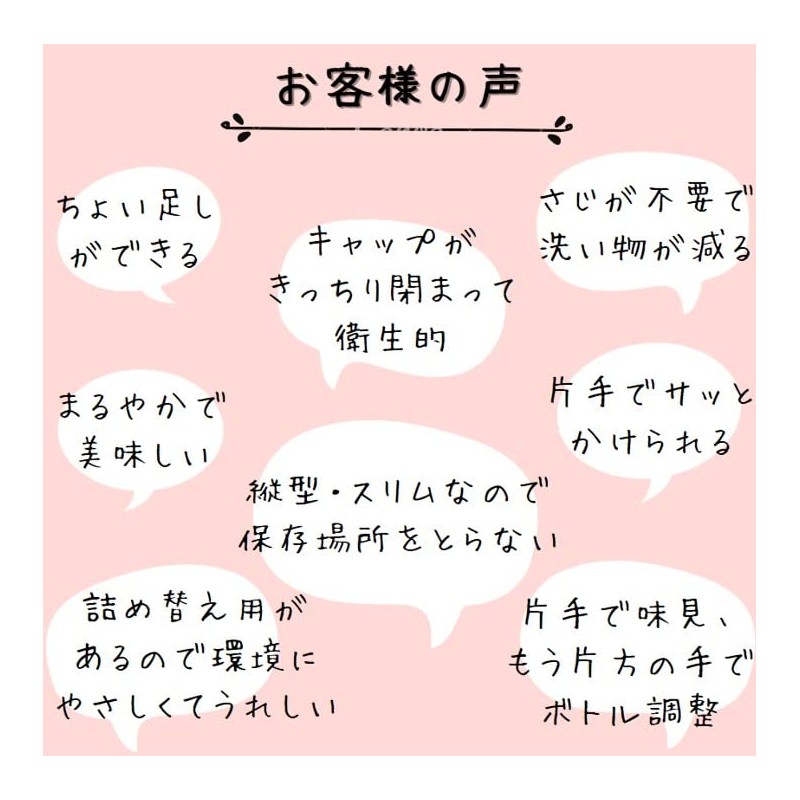 お客様の声
ちょい足し
ができる
キャップが
きっちり閉まって
衛生的
さじが不要で
洗い物が減る
まるやかで
美味しい
縦型・スリムなので
保存場所をとらない
片手でサッと
かけられる
詰め替え用が
あるので環境に
やさしくてうれしい
片手で味見、
もう片方の手で
ボトル調整